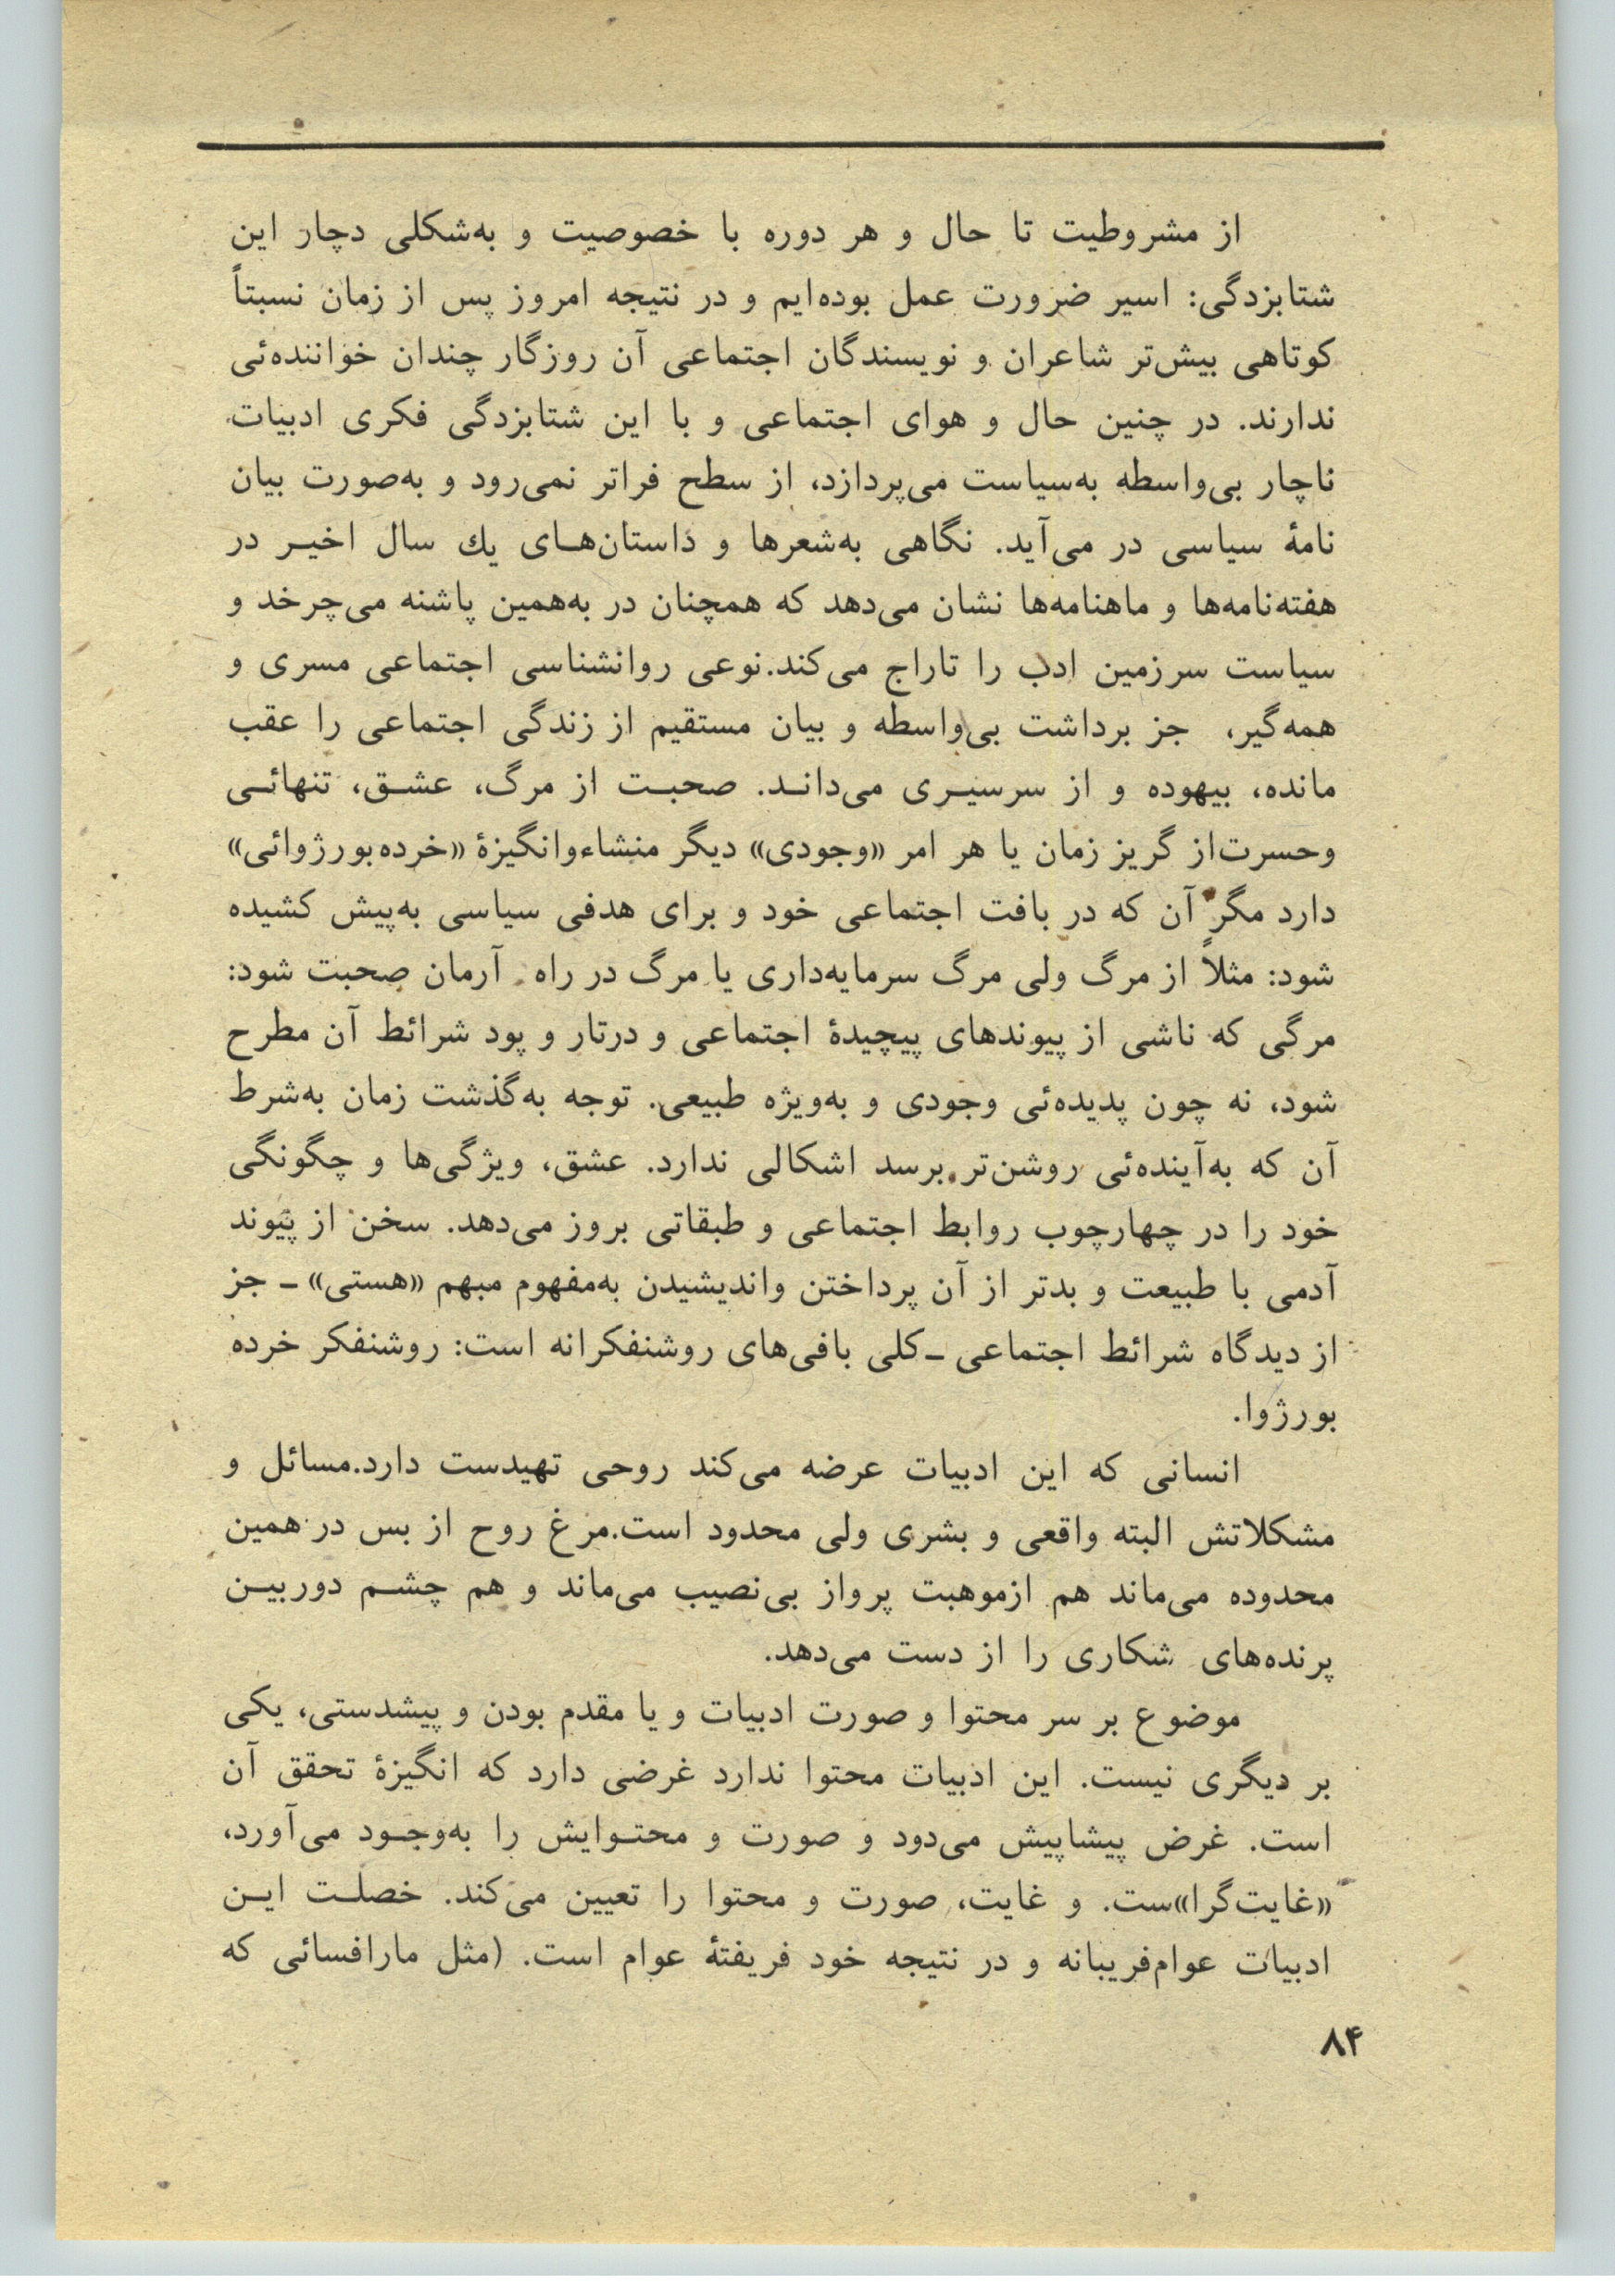 از مشروطیت تا حال و هر دوره با خصوصیت و به‌شکلی دچار این
شتابزدگی: اسیر ضرورت عمل بوده‌ایم و در نتیجه امروز پس از زمان نسبتاً
کوتاهی بیش‌تر شاعران و نویسندگان اجتماعی آن روزگار چندان خواننده‌ئی
ندارند. در چنین حال و هوای اجتماعی و با این شتابزدگی فکری ادبیات
ناچار بی‌واسطه به‌سیاست می‌پردازد، از سطح فراتر نمی‌رود و به‌صورت بیان
نامهٔ سیاسی در می‌آید. نگاهی به‌شعرها و داستان‌هـای یك سال اخیـر در
هفته‌نامه‌ها و ماهنامه‌ها نشان می‌دهد که همچنان در به‌همین پاشنه می‌چرخد و
سیاست سرزمین ادب را تاراج می‌کند.نوعی روانشناسی اجتماعی مسری و
همه‌گیر، جز برداشت بی‌واسطه و بیان مستقیم از زندگی اجتماعی را عقب
مانده، بیهوده و از سرسیـری می‌دانـد. صحبـت از مرگ، عشـق، تنهائـی
وحسرت‌از گریز زمان یا هر امر «وجودی» دیگر منشاءوانگیزهٔ «خرده‌بورژوائی»
دارد مگر آن که در بافت اجتماعی خود و برای هدفی سیاسی به‌پیش کشیده
شود: مثلاً از مرگ ولی مرگ سرمایه‌داری یا مرگ در راه آرمان صحبت شود:
مرگی که ناشی از پیوندهای پیچیدهٔ اجتماعی و درتار و پود شرائط آن مطرح
شود، نه چون پدیده‌ئی وجودی و به‌ویژه طبیعی. توجه به‌گذشت زمان به‌شرط
آن که به‌آینده‌ئی روشن‌تر برسد اشکالی ندارد. عشق، ویژگی‌ها و چگونگی
خود را در چهارچوب روابط اجتماعی و طبقاتی بروز می‌دهد. سخن از پیوند
آدمی با طبیعت و بدتر از آن پرداختن واندیشیدن به‌مفهوم مبهم «هستی» ـ جز
از دیدگاه شرائط اجتماعی ـکلی بافی‌های روشنفکرانه است: روشنفکر خرده
بورژوا.
انسانی که این ادبیات عرضه می‌کند روحی تهیدست دارد.مسائل و
مشکلاتش البته واقعی و بشری ولی محدود است.مرغ روح از بس در همین
محدوده می‌ماند هم ازموهبت پرواز بی‌نصیب می‌ماند و هم چشـم دوربیـن
پرنده‌های شکاری را از دست می‌دهد.
موضوع بر سر محتوا و صورت ادبیات و یا مقدم بودن و پیشدستی، یکی
بر دیگری نیست. این ادبیات محتوا ندارد غرضی دارد که انگیزهٔ تحقق آن
است. غرض پیشاپیش می‌دود و صورت و محتـوایش را به‌وجـود می‌آورد،
«غایت‌گرا»ست. و غایت، صورت و محتوا را تعیین می‌کند. خصلـت ایـن
ادبیات عوام‌فریبانه و در نتیجه خود فریفتهٔ عوام است. (مثل مارافسائی که
۸۴